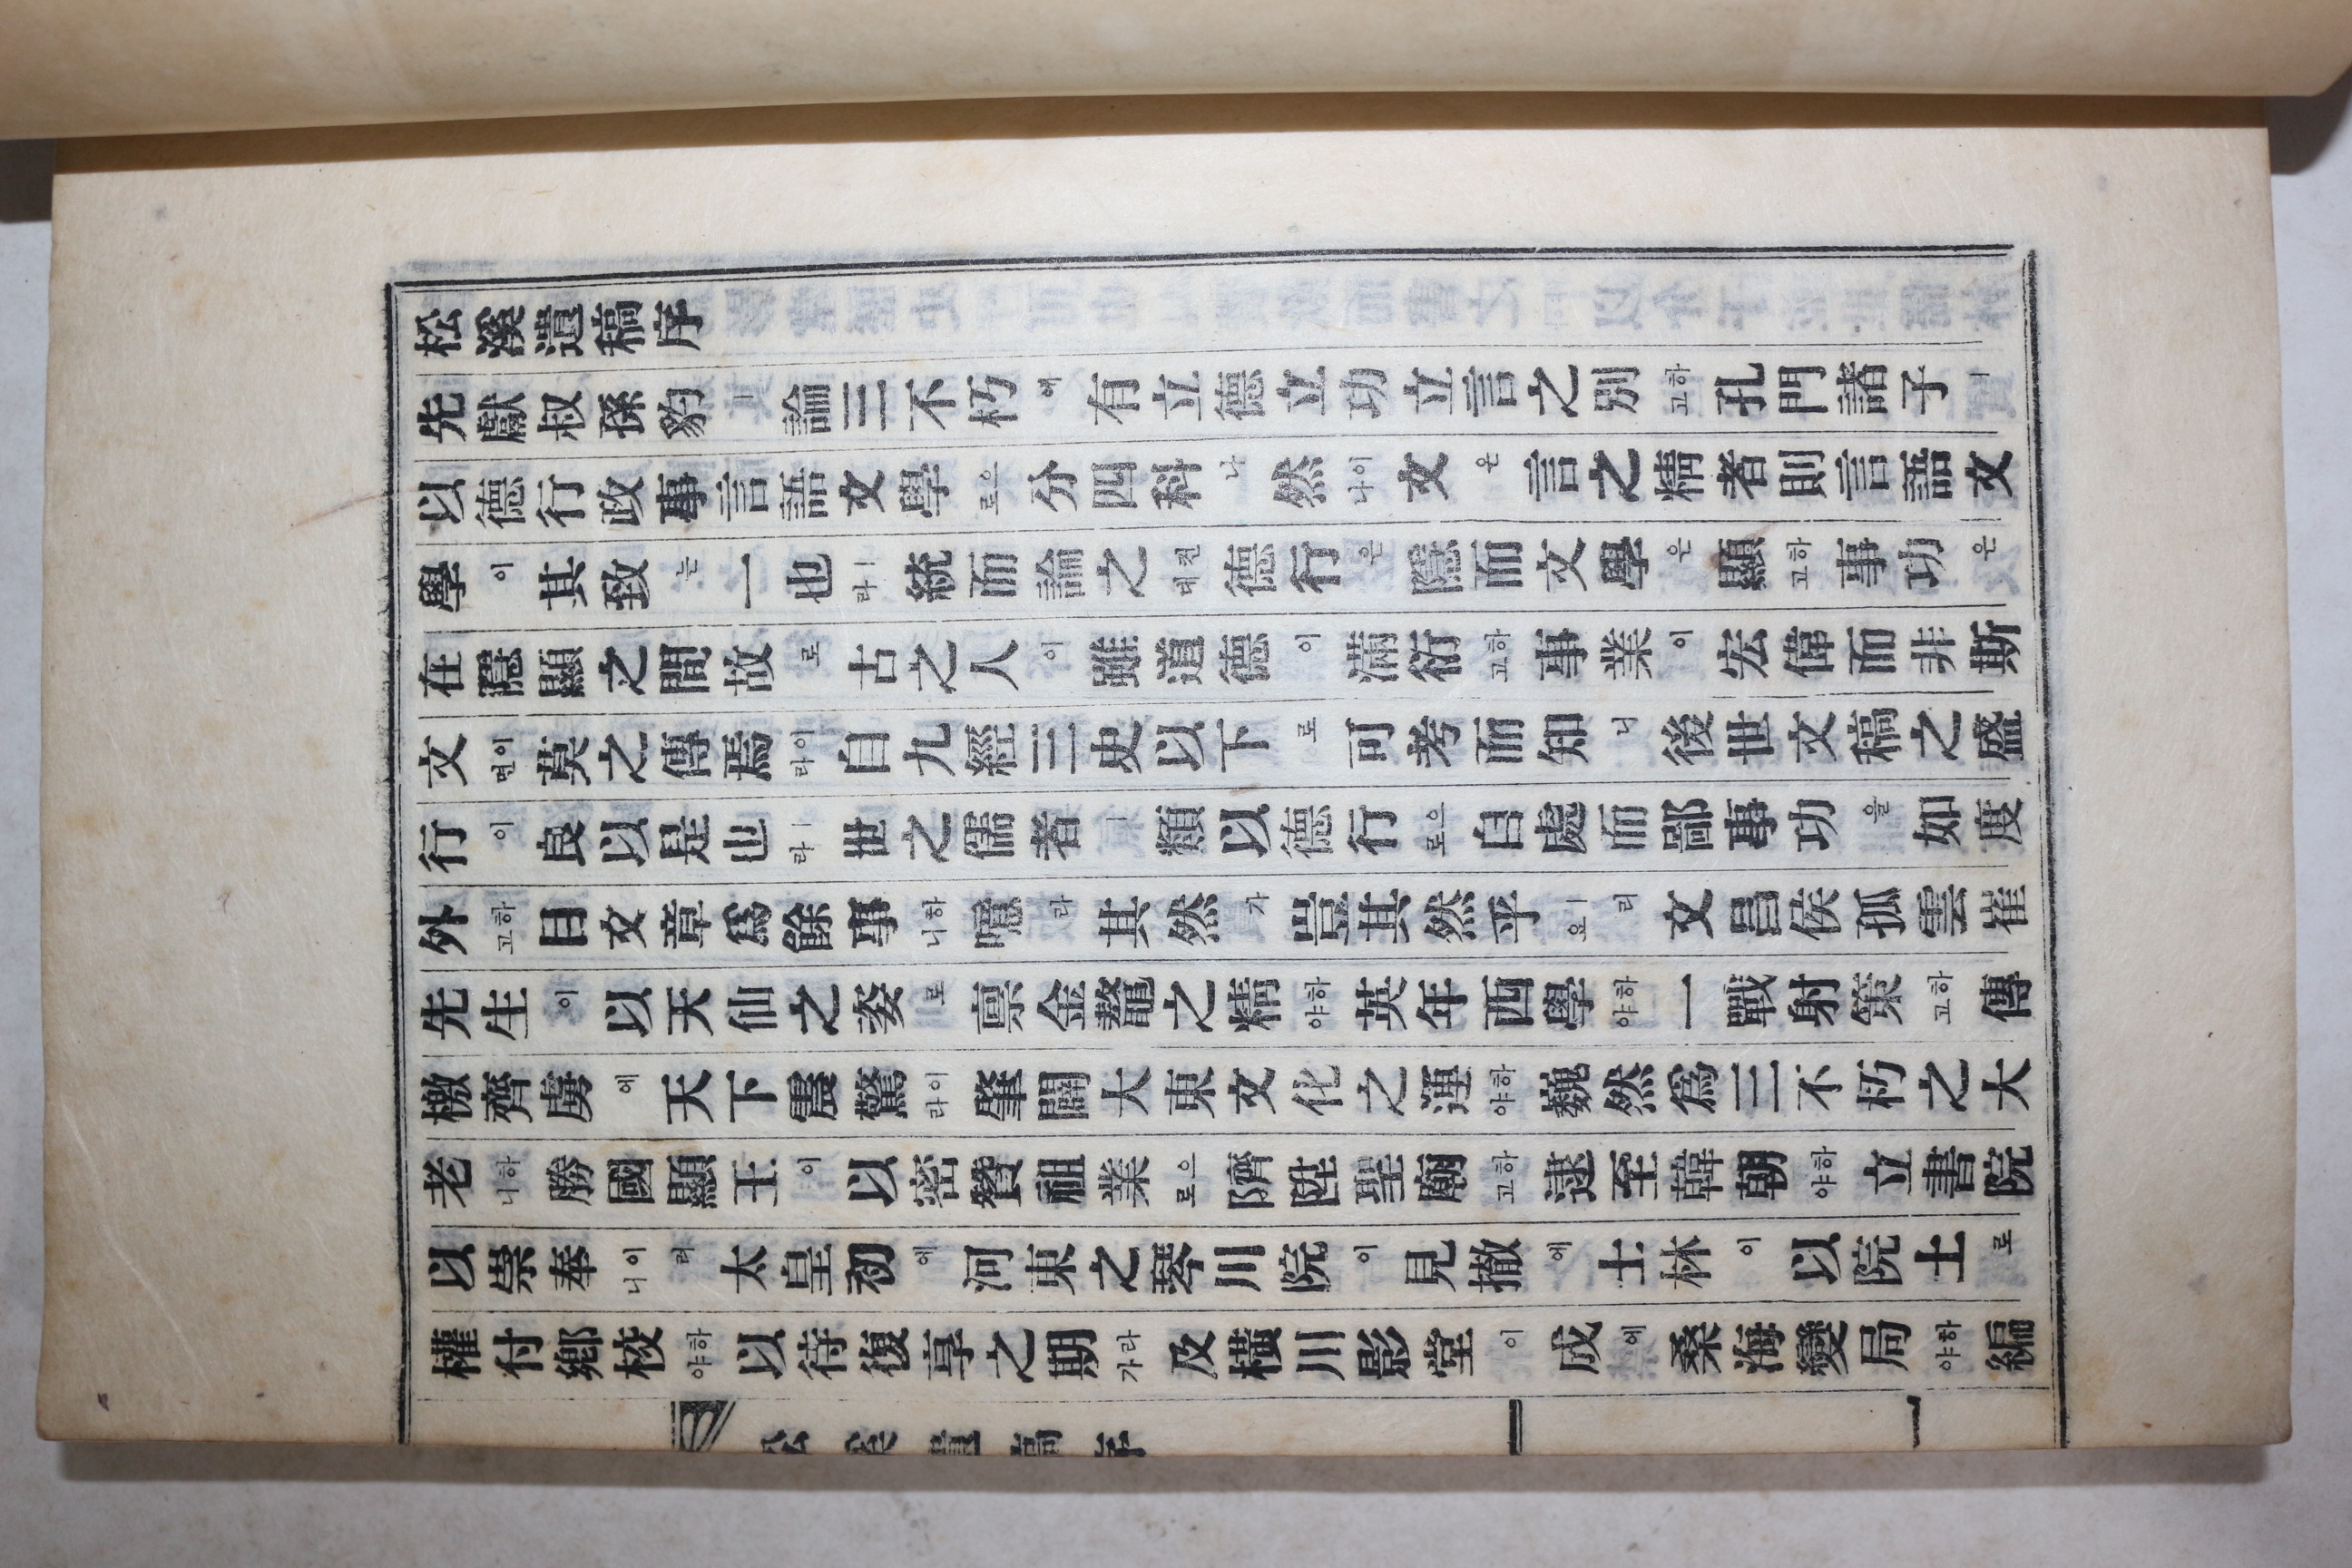 松溪遺稿序
先獻叔孫豹ㅣ論三不朽에有立德立功立言之別하고孔門諸子ㅣ
以德行政事言語文學으로分四科나然이나文은言之精者則言語文
學이其致는一也ㅣ라統而論之컨대德行은隱而文學은顯하고事功은
在隱顯之間故로古之人이雖道德이滿衍하고事業이宏偉而非斯
文이면莫之傳焉이라自九經三史以下로可考而知니後世文稿之盛
行이良以是也ㅣ라世之儒者ㅣ類以德行으로自處而鄙事功을如度
外하고目文章爲餘事하니噫라其然가豈其然乎ㅣ요리文昌侯孤雲崔
先生이以天仙之姿로禀金鼇之精하야英年西學하야一戰射策하고傳
檄齊虜에天下震驚이라肇闢大東文化之運하야巍然爲三不朽之大
老하니勝國顯王이以密贊祖業으로隮陞聖廟하고逮至韓朝하야立書院
以崇奉이니러太皇初에河東之琴川院이見撤에士林이以院土로
權付鄕校하야以待復享之期라가及橫川影堂이成에桑海變局하야編